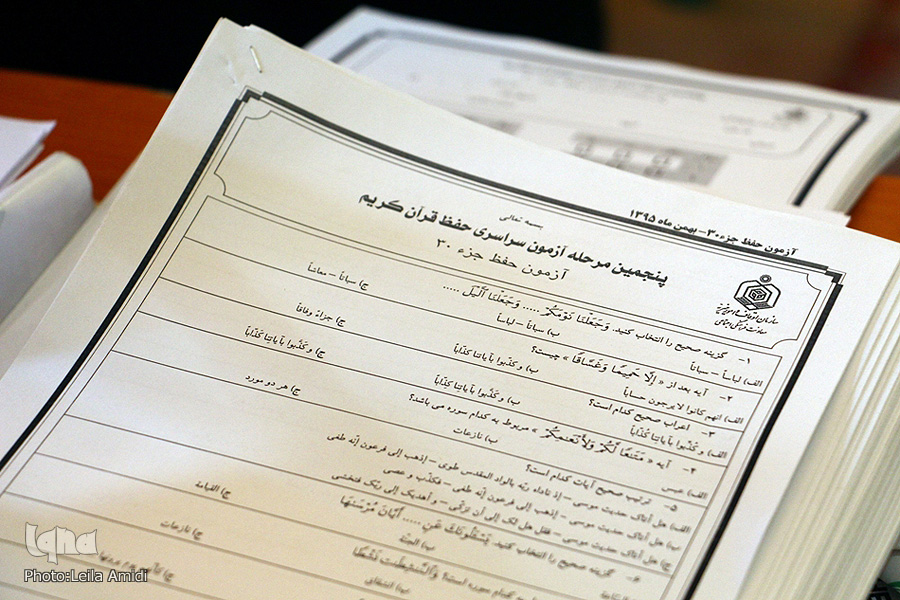 آزمون حفظ جزء ۳۰- بهمن ماه ۱۳۹۵
بسمه تعالی
پنجمین مرحله آزمون سراسری حفظ قرآن کریم
آزمون حفظ جزء ۳۰
سازمان اوقاف و امور خیریه
معاونت فرهنگی و اجتماعی
۱- گزینه صحیح را انتخاب کنید. وَجَعَلْنَا نَوْمَكُمْ ..... وَجَعَلْنَا ٱلَّيْلَ .....
الف) لباساً – سباتاً ب) سباتاً – لباساً ج) سباتاً – معاشاً
۲- آیه بعد از « إِلَّا حَمِيمًا وَغَسَّاقًا » چیست؟
الف) انهم کانوا لا یرجون حساباً ب) و کذّبوا بآیاتنا کذّاباً ج) جزاءً وفاقاً
۳- اعراب صحیح کدام است؟
الف) و کُذّبوا بآیاتنا کذّاباً ب) و کَذّبوا بآیاتنا کذّاباً ج) و کَذّبوا بآیاتنا کِذّاباً
۴- آیه « مَتَاعًا لَّكُمْ وَلِأَنْعَامِكُمْ » مربوط به کدام سوره می باشد؟
الف) عبس ب) نازعات ج) هر دو مورد
۵- ترتیب صحیح آیات کدام است؟
الف) هل أتاک حدیث موسی – إذ ناداه ربّه بالواد المقدس طوی – إذهب إلی فرعون إنّه طغی
ب) هل أتاک حدیث موسی – إذهب إلی فرعون إنّه طغی – فکذّب و عصی
ج) هل أتاک حدیث موسی – فقل هل لک إلی أن تزکّی – و أهدیک إلی ربّک فتخشی
۶- گزینه صحیح را انتخاب کنید. يَسْـَٔلُونَكَ عَنِ ..... أَيَّانَ مُرْسَىٰهَا
ب) البیّنة ج) القیامة
وَٱلنَّٰشِطَٰتِ نَشْطًا کدام سوره است؟
ب) انشقاق ج) نازعات
iqna
Photo:Leila Amidi